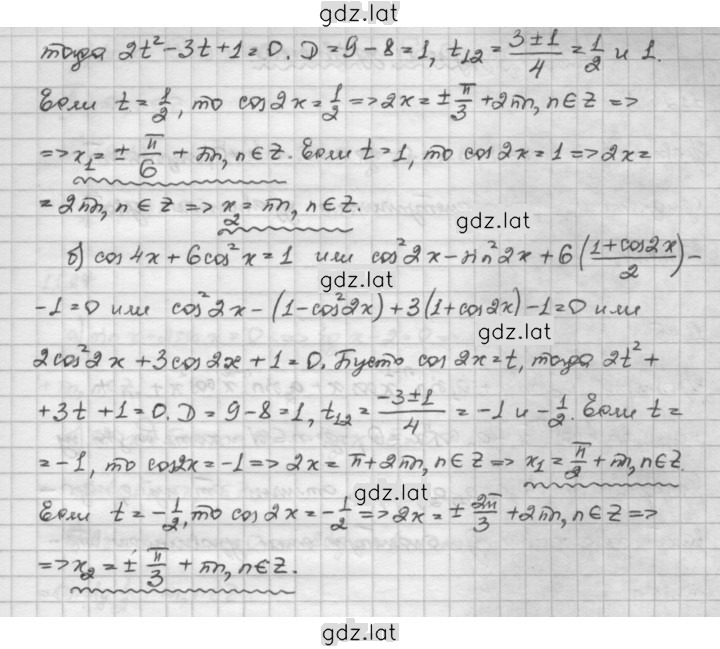 gdz.lat
тогда 2t² - 3t + 1 = 0. D = 9 - 8 = 1, t₁₂ = (3 ± 1)/4 = 1/2 и 1.
Если t = 1/2, то cos 2x = 1/2 => 2x = ± π/3 + 2πn, n ∈ Z =>
=> x₁ = ± π/6 + πn, n ∈ Z. Если t = 1, то cos 2x = 1 => 2x =
= 2πn, n ∈ Z => x₂ = πn, n ∈ Z.
gdz.lat
б) cos 4x + 6cos² x = 1 или cos² 2x - sin² 2x + 6((1 + cos 2x)/2) -
gdz.lat
- 1 = 0 или cos² 2x - (1 - cos² 2x) + 3(1 + cos 2x) - 1 = 0 или
gdz.lat
2cos² 2x + 3cos 2x + 1 = 0. Пусть cos 2x = t, тогда 2t² +
+ 3t + 1 = 0. D = 9 - 8 = 1, t₁₂ = (-3 ± 1)/4 = -1 и -1/2. Если t =
gdz.lat
= -1, то cos 2x = -1 => 2x = π + 2πn, n ∈ Z => x₁ = π/2 + πn, n ∈ Z.
gdz.lat
Если t = -1/2, то cos 2x = -1/2 => 2x = ± 2π/3 + 2πn, n ∈ Z =>
=> x₂ = ± π/3 + πn, n ∈ Z.
gdz.lat
gdz.lat